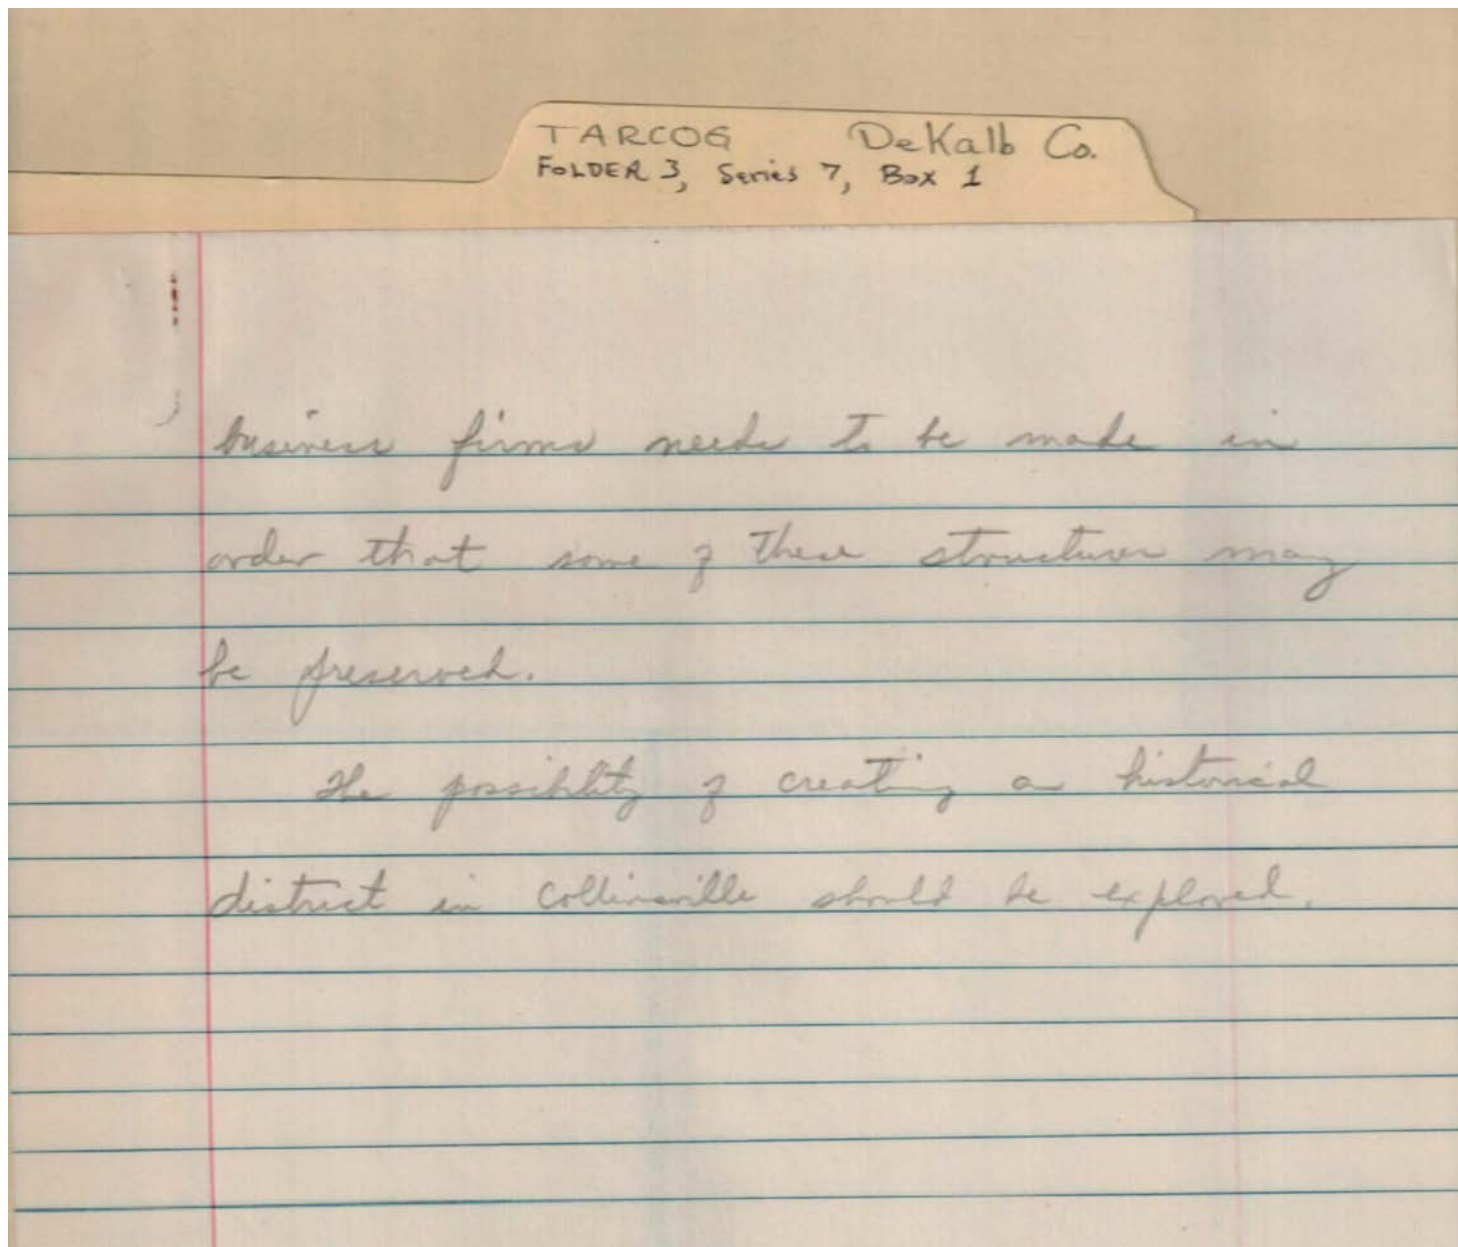 TARCOG DeKalb Co.
FOLDER 3, Series 7, Box 1
business firms needs to be made in
order that some of these structures may
be preserved.
The possibility of creating a historical
district in Collinsville should be explored.